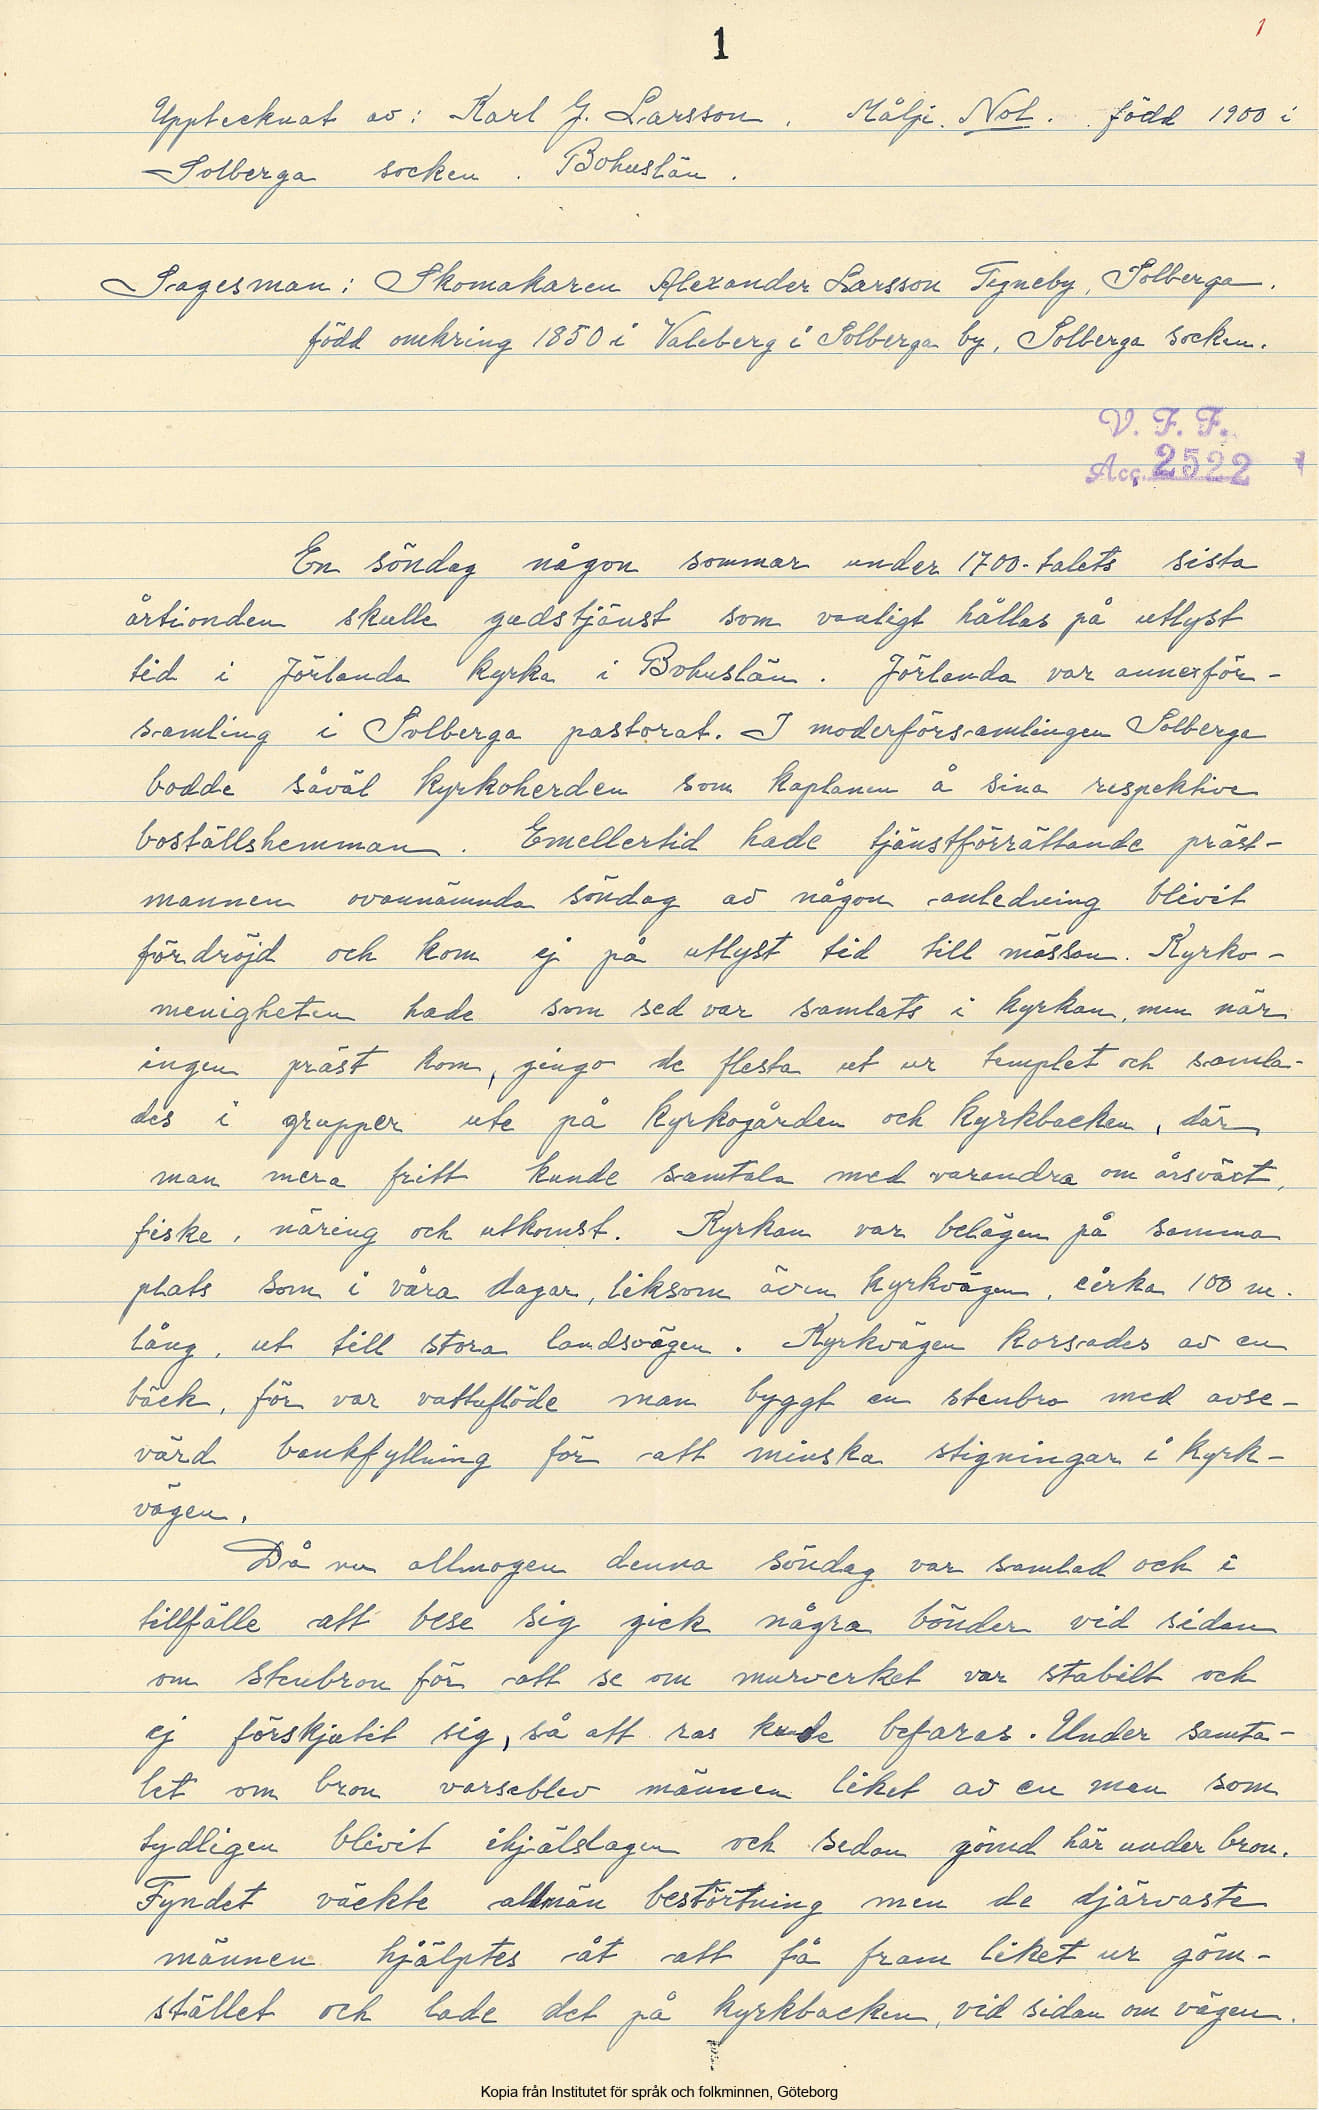 1
1
Upptecknat av: Karl G. Larsson. Målje. Nol. född 1900 i
Solberga socken. Bohuslän.
Sagesman: Skomakaren Alexander Larsson Tyneby, Solberga.
född omkring 1850 i Valeberg i Solberga by, Solberga socken.
V. F. F.
Acc. 2522
En söndag någon sommar under 1700-talets sista
årtionden skulle gudstjänst som vanligt hållas på utlyst
tid i Jörlanda kyrka i Bohuslän. Jörlanda var annexför-
samling i Solberga pastorat. I moderförsamlingen Solberga
bodde såväl kyrkoherden som kaplanen å sina respektive
boställshemman. Emellertid hade tjänstförrättande präst-
mannen ovannämnda söndag av någon anledning blivit
fördröjd och kom ej på utlyst tid till mässan. Kyrko-
menigheten hade som sed var samlats i kyrkan, men när
ingen präst kom, gingo de flesta ut ur templet och samla-
des i grupper ute på kyrkogården och kyrkbacken, där
man mera fritt kunde samtala med varandra om årsväxt,
fiske, näring och utkomst. Kyrkan var belägen på samma
plats som i våra dagar, liksom även kyrkvägen, cirka 100 m.
lång, ut till stora landsvägen. Kyrkvägen korsades av en
bäck, för var vattuflöde man byggt en stenbro med avse-
värd bankfyllning för att minska stigningar i kyrk-
vägen.
Då nu allmogen denna söndag var samlad och i
tillfälle att bese sig gick några bönder vid sidan
om stenbron för att se om murverket var stabilt och
ej förskjutit sig, så att ras kunde befaras. Under samta-
let om bron varseblev männen liket av en man som
tydligen blivit ihjälslagen och sedan gömd här under bron.
Fyndet väckte allmän bestörtning men de djärvaste
männen hjälptes åt att få fram liket ur göm-
stället och lade det på kyrkbacken, vid sidan om vägen.
Kopia från Institutet för språk och folkminnen, Göteborg